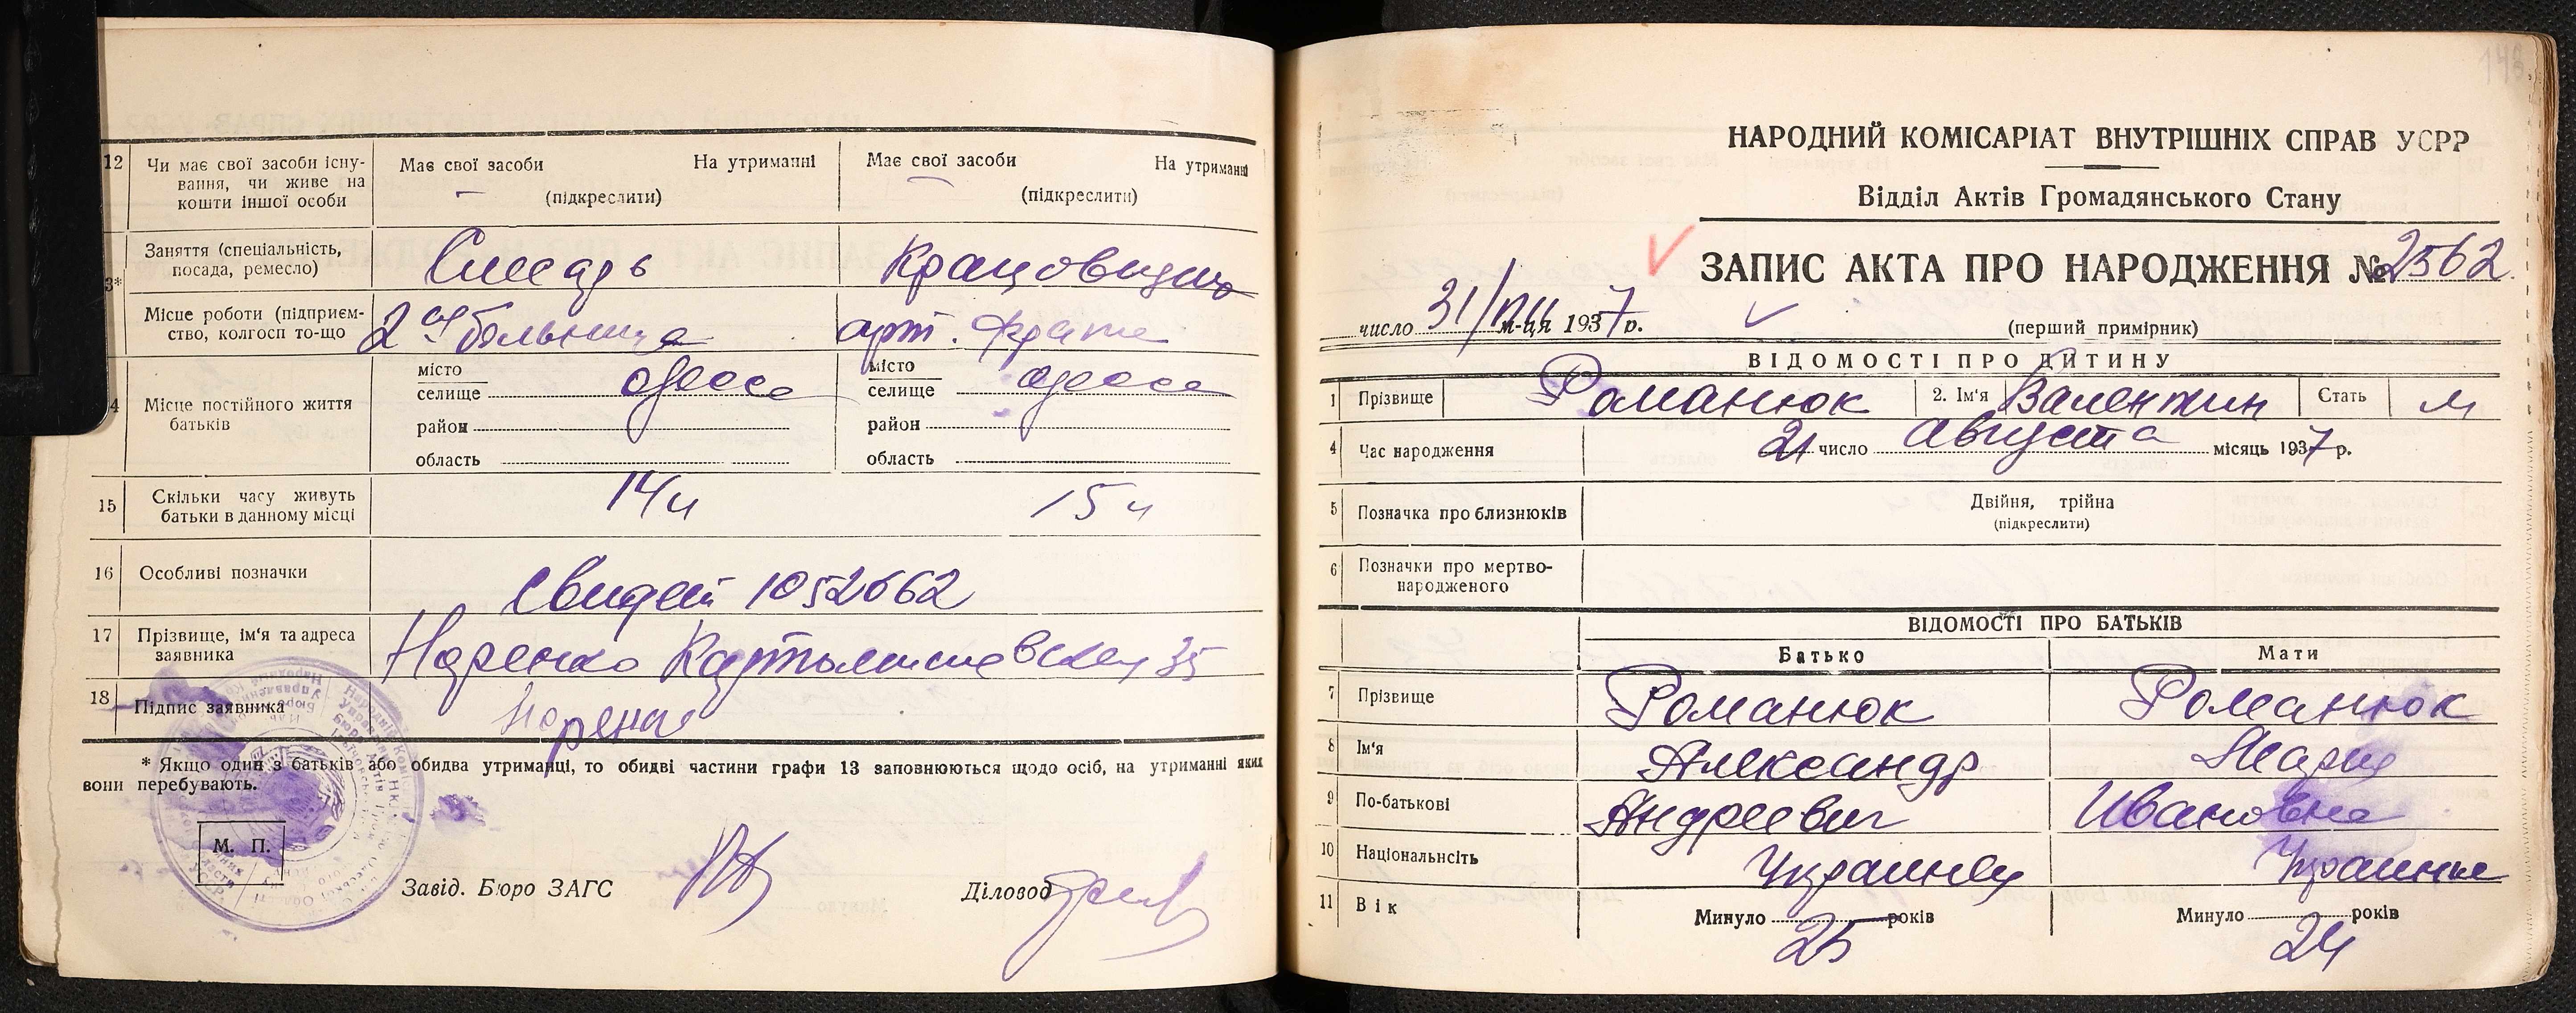 12 Чи має свої засоби існу-
вання, чи живе на
кошти іншої особи
Має свої засоби На утриманні
(підкреслити)
Має свої засоби На утриманні
(підкреслити)
3* Заняття (спеціальність,
посада, ремесло)
Слесарь
Місце роботи (підприєм-
ство, колгосп то-що
2ая больница арт.
4 Місце постійного життя
батьків
місто
селище Одесса
район
область
місто
селище Одесса
район
область
15 Скільки часу живуть
батьки в данному місці
14 15
16 Особливі позначки
Свидет 1052662
17 Прізвище, ім'я та адреса
заявника
35
18 Підпис заявника
* Якщо один з батьків або обидва утриманці, то обидві частини графи 13 заповнюються щодо осіб, на утриманні яких
вони перебувають.
М. П.
Завід. Бюро ЗАГС Діловод
148
НАРОДНИЙ КОМІСАРІАТ ВНУТРІШНІХ СПРАВ УСРР
Відділ Актів Громадянського Стану
ЗАПИС АКТА ПРО НАРОДЖЕННЯ № 2562
число 31/VIII м-ця 1937 р.
(перший примірник)
ВІДОМОСТІ ПРО ДИТИНУ
1 Прізвище Романюк 2. Ім'я Валентин Стать м
4 Час народження 21 число Августа місяць 1937 р.
5 Позначка про близнюків Двійня, трійня
(підкреслити)
6 Позначки про мертво-
народженого
ВІДОМОСТІ ПРО БАТЬКІВ
Батько Мати
7 Прізвище Романюк Романюк
8 Ім'я Александр Мария
9 По-батькові Андреевич Ивановна
10 Національнсіть Украинец Украинка
11 Вік Минуло 25 років Минуло 24 років